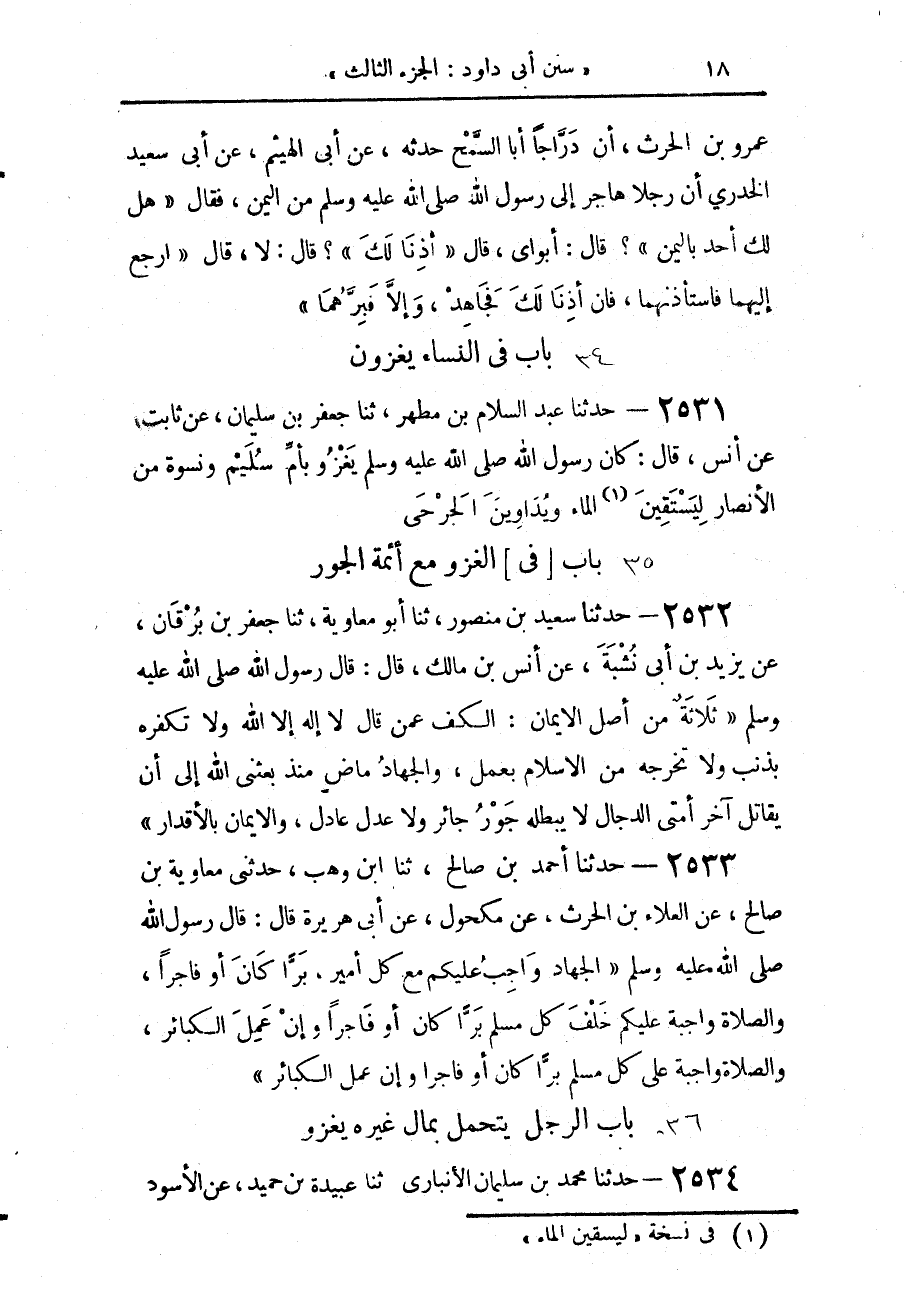 ١٨ « سنن أبى داود : الجزء الثالث »
عمرو بن الحرث ، أن دَرَّاجاً أبا السَّمْح حدثه ، عن أبى الهيثم ، عن أبى سعيد
الخدري أن رجلا هاجر إلى رسول الله صلى الله عليه وسلم من اليمن ، فقال « هل
لك أحد باليمن » ؟ قال : أبواى ، قال « أذِنَا لَكَ » ؟ قال : لا ، قال « ارجع
إليهما فاستأذنهما ، فان أذِنَا لَكَ فَجَاهِدْ ، وَإلاَّ فَبِرَّهُمَا »
٣٤ باب فى النساء يغزون
٢٥٣١ — حدثنا عبد السلام بن مطهر ، ثنا جعفر بن سليمان ، عن ثابت ،
عن أنس ، قال : كان رسول الله صلى الله عليه وسلم يَغْزُو بأمِّ سُلَيْم ونسوة من
الأنصار لِيَسْتَقِينَ (١) الماء ويُدَاوِينَ الْجَرْحَى
٣٥ باب [ فى ] الغزو مع أئمة الجور
٢٥٣٢ — حدثنا سعيد بن منصور ، ثنا أبو معاوية ، ثنا جعفر بن بُرْقَان ،
عن يزيد بن أبى نُشْبَةَ ، عن أنس بن مالك ، قال : قال رسول الله صلى الله عليه
وسلم « ثَلَاثَةٌ من أصل الايمان : الكف عمن قال لا إله إلا الله ولا تكفره
بذنب ولا تخرجه من الاسلام بعمل ، والجهادُ ماضٍ منذ بعثنى الله إلى أن
يقاتل آخر أمتى الدجال لا يبطله جَوْرُ جائر ولا عدل عادل ، والايمان بالأقدار »
٢٥٣٣ — حدثنا أحمد بن صالح ، ثنا ابن وهب ، حدثنى معاوية بن
صالح ، عن العلاء بن الحرث ، عن مكحول ، عن أبى هريرة قال : قال رسول الله
صلى الله عليه وسلم « الجهاد وَاجِبُ عليكم مع كل أمير . بَرًّا كَانَ أو فاجراً ،
والصلاة واجبة عليكم خَلْفَ كل مسلم بَرًّا كان أو فَاجراً وإنْ عَمِلَ الكبائر ،
والصلاة واجبة على كل مسلم برًّا كان أو فاجرا وإن عمل الكبائر »
٣٦ باب الرجل يتحمل بمال غيره يغزو
٢٥٣٤ — حدثنا محمد بن سليمان الأنبارى ثنا عبيدة بن حميد ، عن الأسود
(١) فى نسخة « ليسقين الماء »